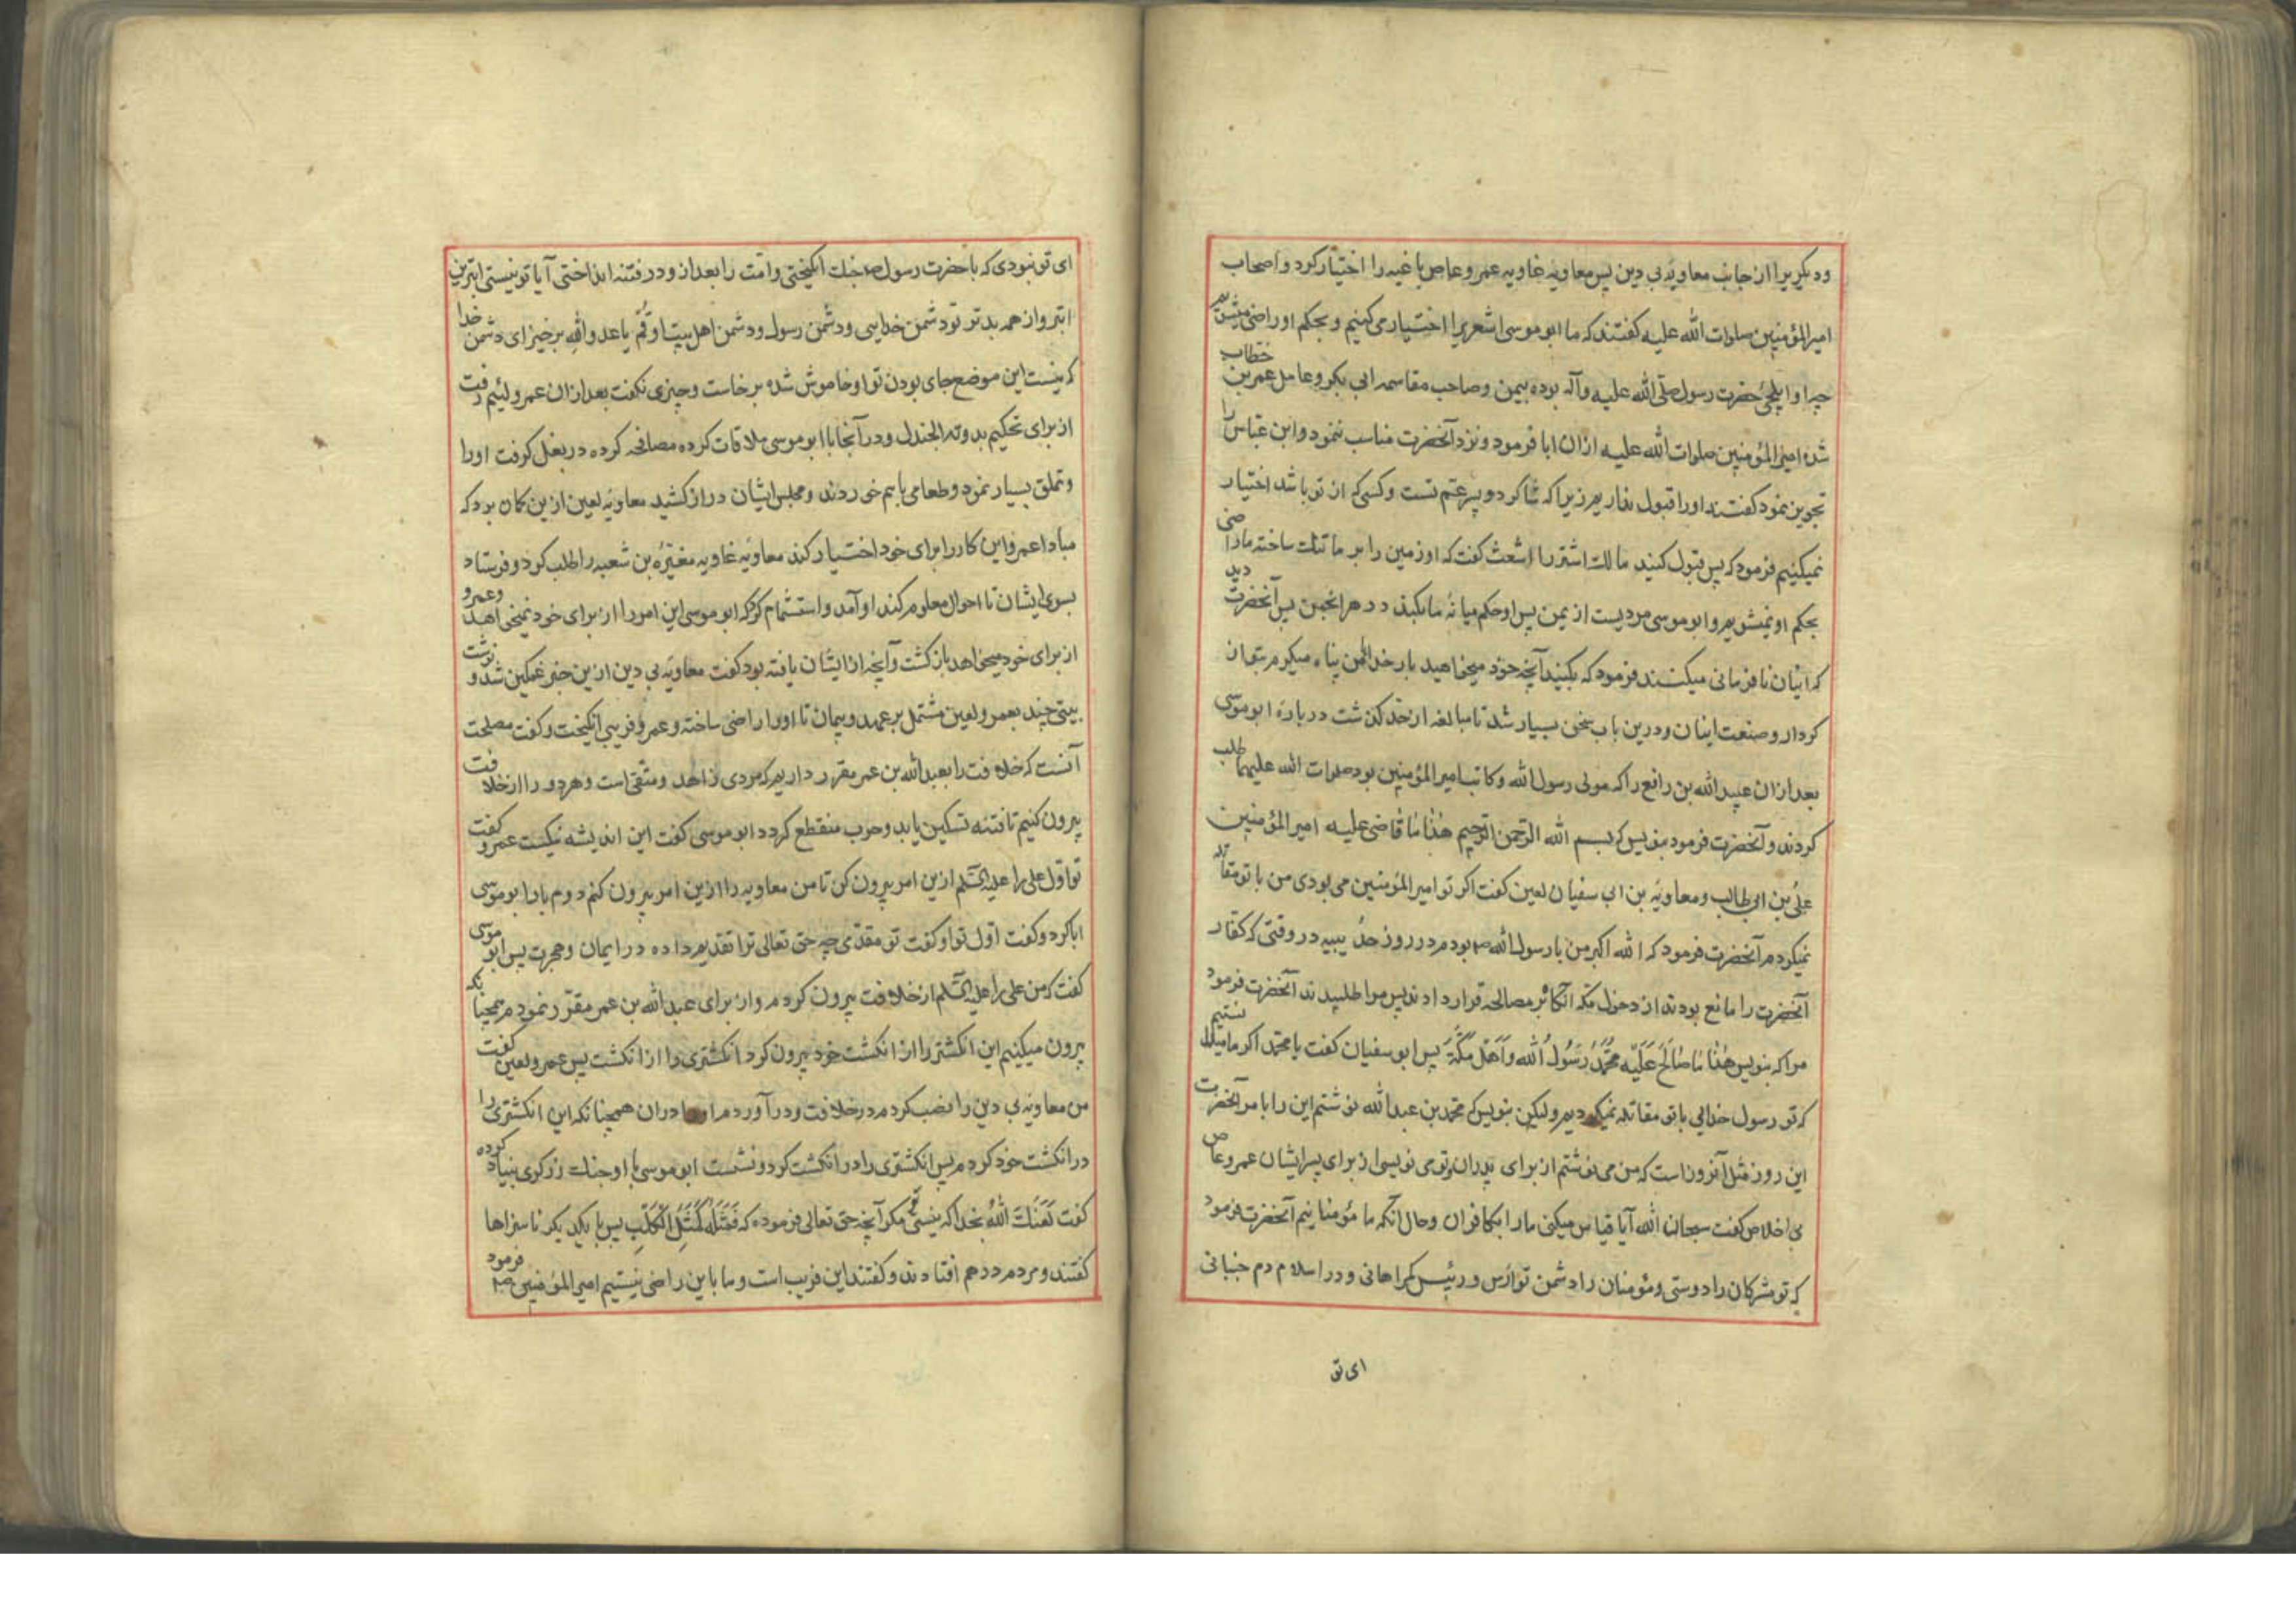 ودیکریرا از جانب معاویهٔ بی دین پس معاویه غاویه عمر وعاص باغیه را اختیار کرد و اصحاب
امیرالمؤمنین صلوات الله علیه کفتند که ما ابو موسی اشعریرا اختیار می کنیم و بحکم او راضی میشویم
چرا او ایلچی حضرت رسول صلّی الله علیه وآله بوده بیمن وصاحب مقاسمه ابی بکر وعامل عمر بن خطاب
شده امیرالمؤمنین صلوات الله علیه ازان ابا فرمود ونزد آنحضرت مناسب ننمود وابن عباس را
تجویز نمود کفتند اورا قبول نداریم زیرا که شاکرد و پسر عتم تست وکسی که از تو باشد اختیار
نمیکنیم فرمود که پس قبول کنید مالك اشتر را اشعث کفت که او زمین را بر ما تنك ساخته ما راضی
بحکم او نمیشویم وابو موسی مردیست از یمن پس او حکم میانهٔ ما بکند در هر انجمن پس آنحضرت دید
که ایشان نافرمانی میکنند فرمود که بکنید آنچه خود میخواهید بار خدایا من پناه میکیرم بتو از
کردار وصنعت اینان ودرین باب سخن بسیار شد تا مبالغه از حد کذشت درباره ابو موسی
بعد ازان عبید الله بن رافع را که مولی رسول الله وکاتب امیرالمؤمنین بود صلوات الله علیهما طلب
کردند وآنحضرت فرمود بنویس که بسم الله الرّحمن الرّحیم هٰذا مٰا قٰاضی علیه امیر المؤمنین
علیّ بن ابی طالب ومعاویه بن ابی سفیان لعین کفت اکر تو امیرالمؤمنین می بودی من با تو مقاتله
نمیکردم آنحضرت فرمود که الله اکبر من با رسول الله ص بودم در روز حدیبیه در وقتی که کفار
آنحضرت را مانع بودند از دخول مکه آنکاه بر مصالحه قرار دادند پس مرا طلبیدند آنحضرت فرمود
مرا که بنویس هٰذٰا مٰا صٰالَحَ عَلَیْه مُحَمَّدٌ رَسُولُ الله وَاَهْلَ مَکَّةَ پس ابو سفیان کفت یا محمد اکر ما میدانستیم
که تو رسول خدایی با تو مقاتله نمیکردیم ولیکن بنویس که محمد بن عبد الله نوشتم این را بامر آنحضرت
این روز مثل آنروز است که من می نوشتم از برای پدران وتو می نویسی از برای پسر ایشان عمر وعاص
بی اخلاص کفت سبحان الله آیا قیاس میکنی ما را بکافران وحال آنکه ما مؤمنانیم آنحضرت فرمود
که تو مشرکان را دوستی ومؤمنان را دشمن تو ارس ورئیس کمراهانی ودر اسلام دم جنبانی
ای تو
ای تو نبودی که با حضرت رسول ص جنك انکیختی وامّت را بعد از و در فتنه انداختی آیا تو نیستی ابتر بن
ابتر واز همه بدتر تو دشمن خدایی ودشمن رسول ودشمن اهل بیت او قُمْ یا عدو الله برخیز ای دشمن خدا
که نیست این موضع جای بودن تو او خاموش شده برخاست وچیزی نکفت بعد ازان عمرو لئیم رفت
از برای تحکیم بدومة الجندل ودر آنجا با ابو موسی ملاقات کرده مصافحه کرده در بغل کرفت اورا
وتملق بسیار نمود وطعامی باهم خوردند ومجلس ایشان دراز کشید معاویه لعین ازین کمان بود که
مبادا عمرو این کار را برای خود اختیار کند معاویه غاویه مغیره بن شعبه را طلب کرد وفرستاد
بسوی ایشان تا احوال معلوم کند او آمد واستشمام کرد که ابو موسی این امور را از برای خود نمیخواهد وعمرو
از برای خود میخواهد بازکشت وآنچه از ایشان یافته بود کفت معاویه بی دین ازین خبر غمکین شد و نوشت
بیتی چند بعمرو لعین مشتمل بر عهد وپیمان تا اورا راضی ساخته وعمرو فریبی انکیخت وکفت مصلحت
آنست که خلافت را بعبد الله بن عمر مقرر داریم که مردی زاهد ومتّقی است وهر دو را از خلافت
بیرون کنیم تا فتنه تسکین یابد وحرب منقطع کردد ابو موسی کفت این اندیشه نیکست عمرو کفت
تو اوّل علی را علیه السّلم ازین امر بیرون کن تا من معاویه را ازین امر بیرون کنم دوم بار ابو موسی
ابا کرد وکفت اوّل تو او کفت تو مقدّمی چه حق تعالی ترا تقدیم داده در ایمان وهجرت پس ابو موسی
کفت که من علی را علیه السّلم از خلافت بیرون کردم واز برای عبد الله بن عمر مقرّر نمودم همچنانکه
بیرون میکنیم این انکشتر را از انکشت خود بیرون کرد انکشتری را از انکشت پس عمرو لعین کفت
من معاویه بی دین را نصب کردم در خلافت ودر آوردم اورا دران همچنانکه این انکشتری را
در انکشت خود کردم پس انکشتری را در انکشت کرد ونشست ابو موسی با او جنك زرکری بنیاد کرده
کفت لَعَنَكَ اللهُ بخدا که نیستی تو مکر آنچه حق تعالی فرموده که فَمَثَلُهُ کَمَثَلِ الْکَلْبِ پس با یکدیکر ناسزاها
کفتند ومردم در هم افتادند وکفتند این فریب است وما باین راضی نیستیم امیر المؤمنین ص فرمود